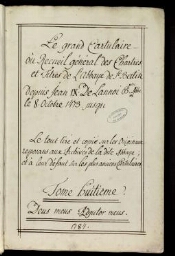 Le grand Cartulaire
ou Recueil général des Chartres
et titres de l'abbaye de St Bertin
Depuis Jean IX De Lannoi
le 8 Octobre 1473. jusqu
Le tout tiré et copié sur les Originaux
reposans aux Archives de la dite Abbaye
et à leur défaut sur les plus anciens Cartulaires
Tome huitieme
Deus meus Adjutor meus.
1787.